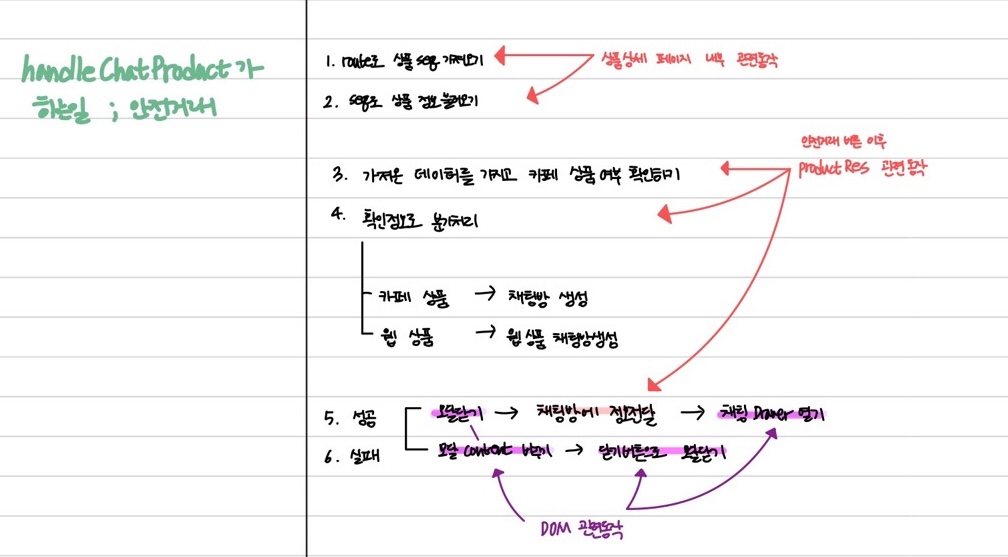 handleChatProduct가
하는일 ; 안전거래
1. route로 상품 seq 가져오기
상품상세 페이지 내부 관련동작
2. seq로 상품 정보 불러오기
안전거래 버튼 이후
productRes 관련동작
3. 가져온 데이터를 가지고 카페 상품 여부 확인하기
4. 확인정보로 분기처리
카페 상품 → 채팅방 생성
웹 상품 → 웹 상품 채팅방생성
5. 성공 모달닫기 → 채팅방에 정보전달 → 채팅 Drawer 열기
6. 실패 모달 content 바꾸기 → 닫기버튼으로 모달닫기
DOM 관련동작